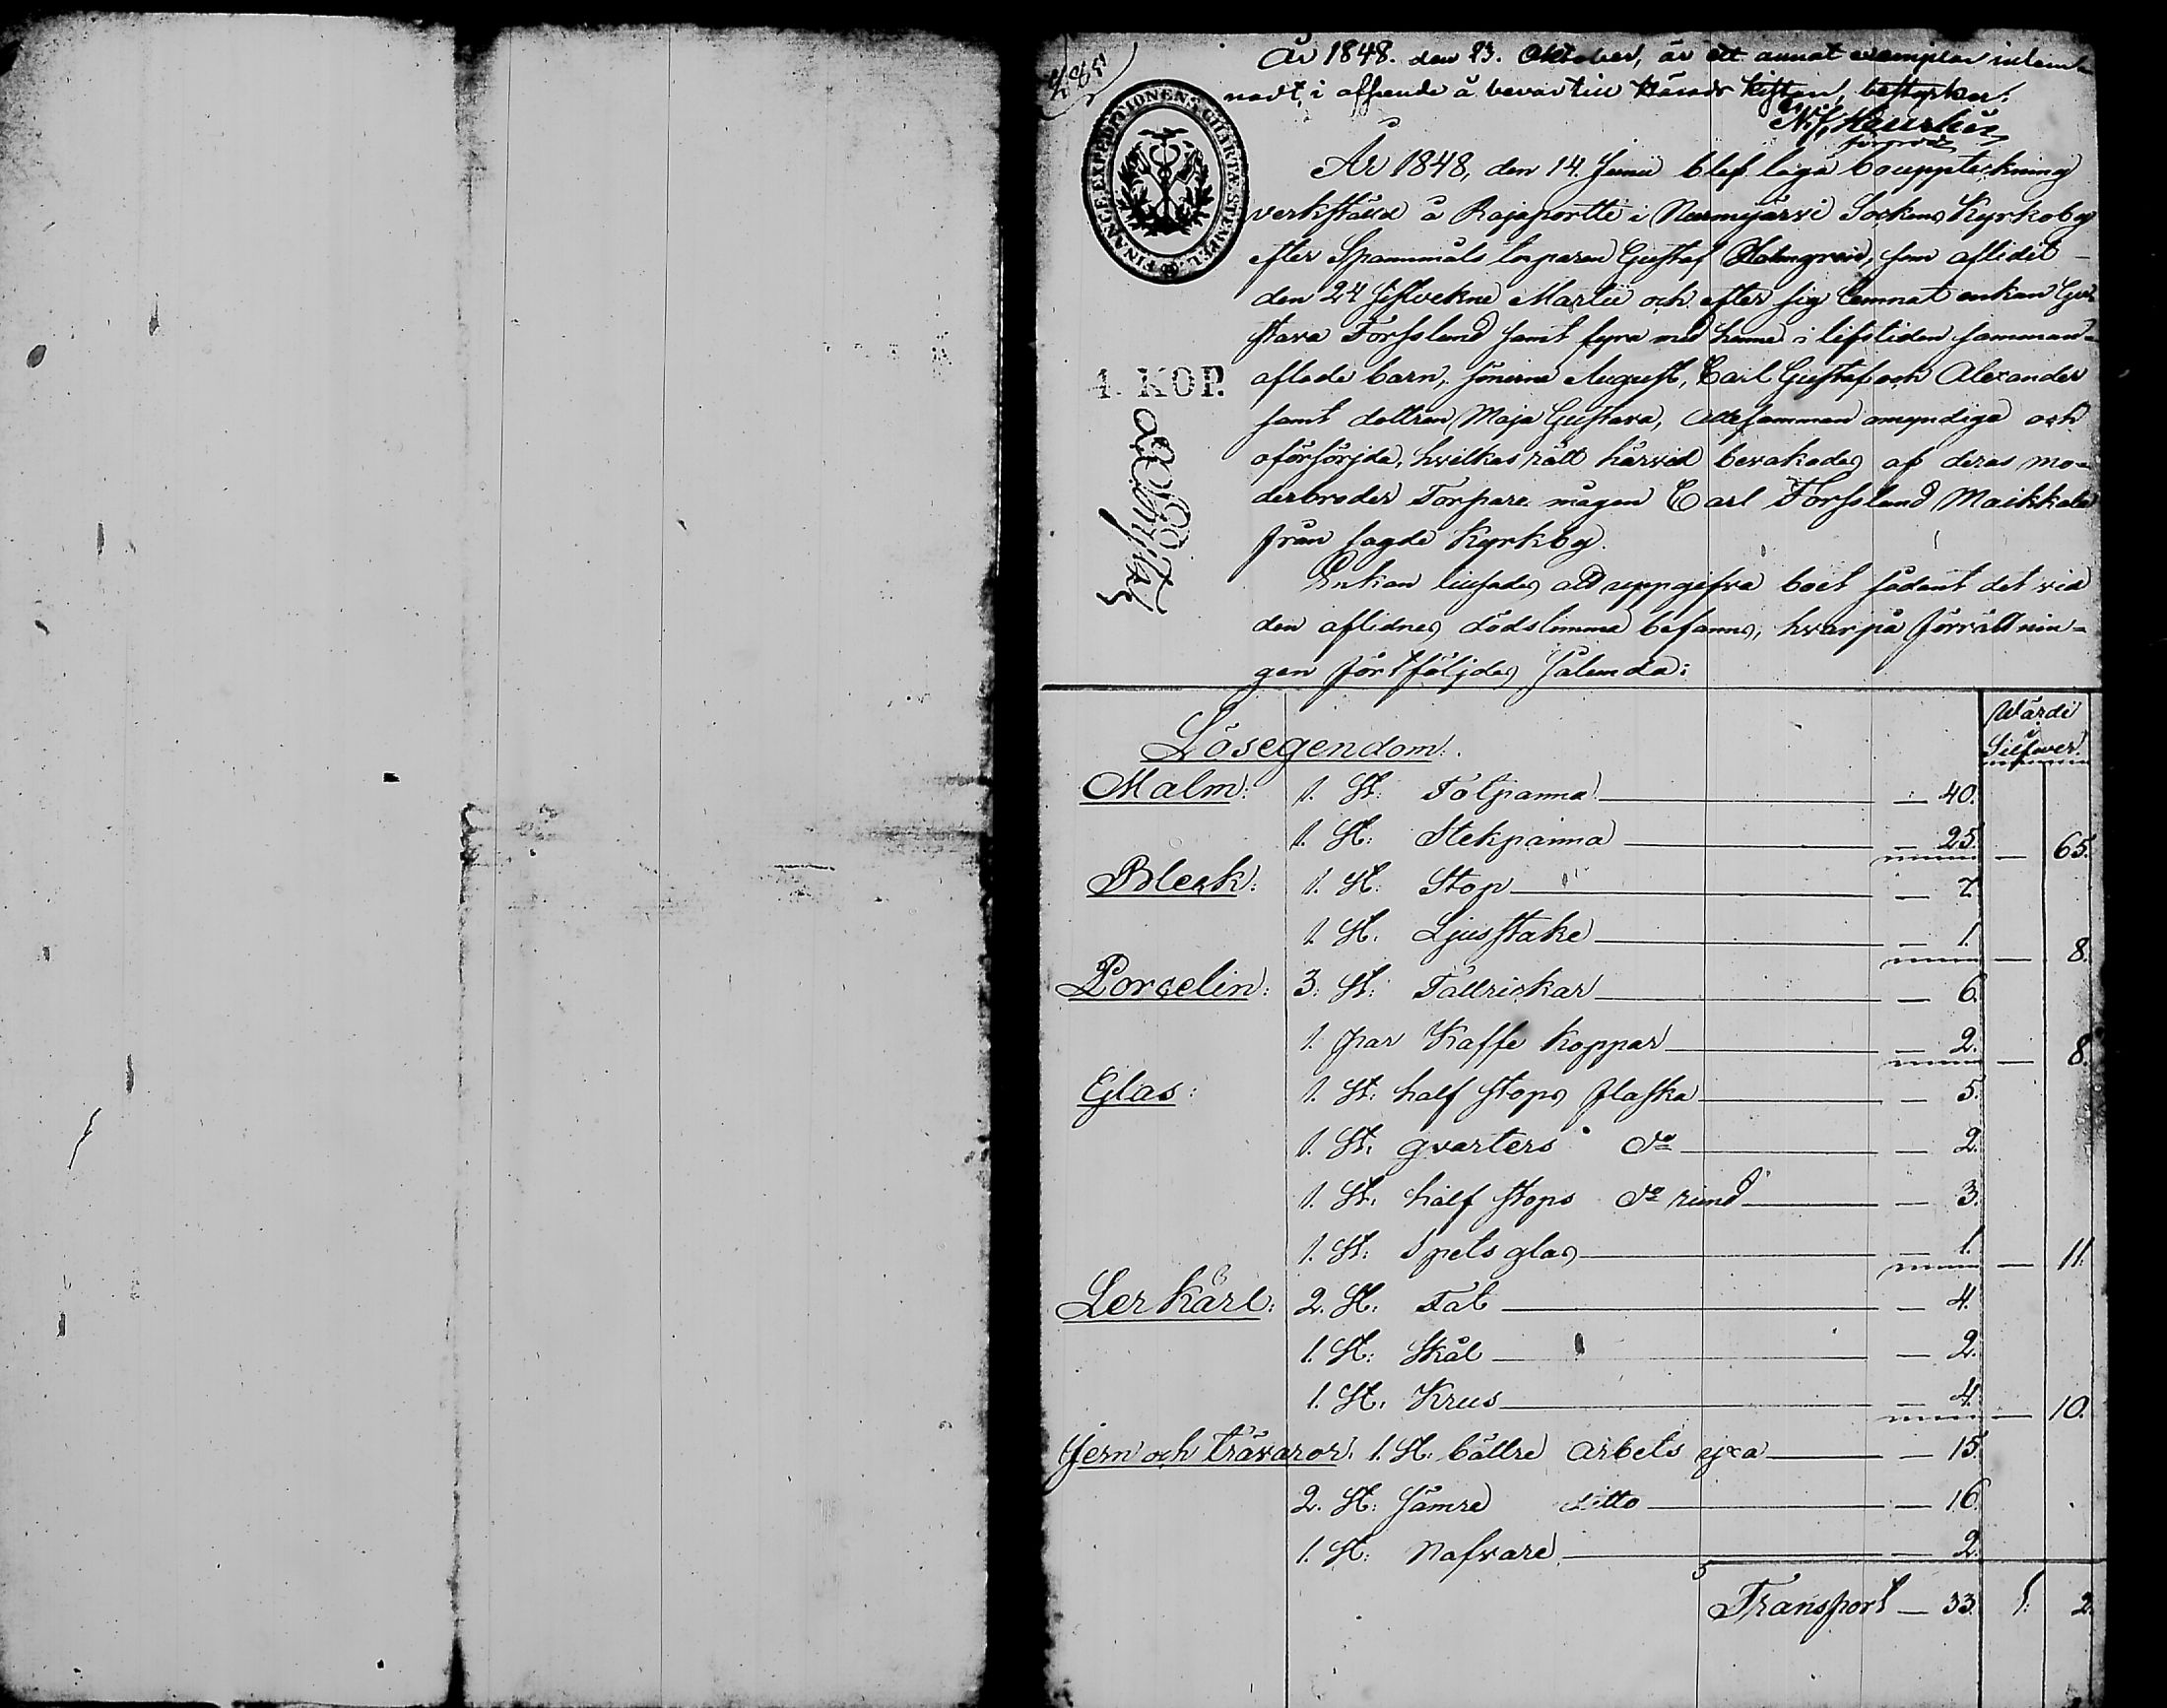 År 1848. den 23. Oktober, är ett annat exemplar inlem-
nadt, i afseende å bevar till Härads Kistan, bestyrker:
FINANCE EXPEDITIONENS CHARTÆ STEMPEL
År 1848, den 14. Junii blef laga bouppteckning
verkstäld å Rajaportti i Nurmijärvi Sockens Kyrkoby
efter Spannmåls torparen Gustaf Holmgren, som aflidit
den 24 sistvekne Martii och efter sig lemnat enkan Gu-
stava Forsslund samt fyra med henne i lifstiden samman-
aflade barn, sönerne August, Carl Gustaf och Alexander
1. KOP.
samt dottren Maja Gustava, allesamman omyndiga och
oförsörjda, hvilkas rätt härvid bevakades af deras mo-
derbroder Torpare mågen Carl Forsslund Maikkala
från sagde Kyrkby.
Enkan tillsades att uppgifva boet sådant det vid
den aflidnes dödstimma befanns, hvarpå förrättnin-
gen fortföljdes sålunda:
Wärde
Silfwer.
Lösegendom:
Malm: 1. St: Fotpanna — 40.
1. St: Stekpanna — 25. — 65.
Bleck: 1. St: Stop — 7.
1. St. Ljusstake — 1. — 8.
Porcelin: 3. St: Tallrickar — 6.
1. par Kaffe koppar — 2. — 8.
Glas: 1. St: half stops flaska — 5.
1. St. qvarters do — 2.
1. St. half stops do rund — 3.
1. St: Spetsglas — 1. — 11.
Ler Kärl: 2. St. Fat — 4.
1. St: Skål — 2.
1. St. Krus — 4. — 10.
Jern och trävaror: 1. St: bättre arbets yxa — 15.
2. St: sämre ditto — 16.
1. St: Nafvare — 2.
Transport — 33. 1: 2.